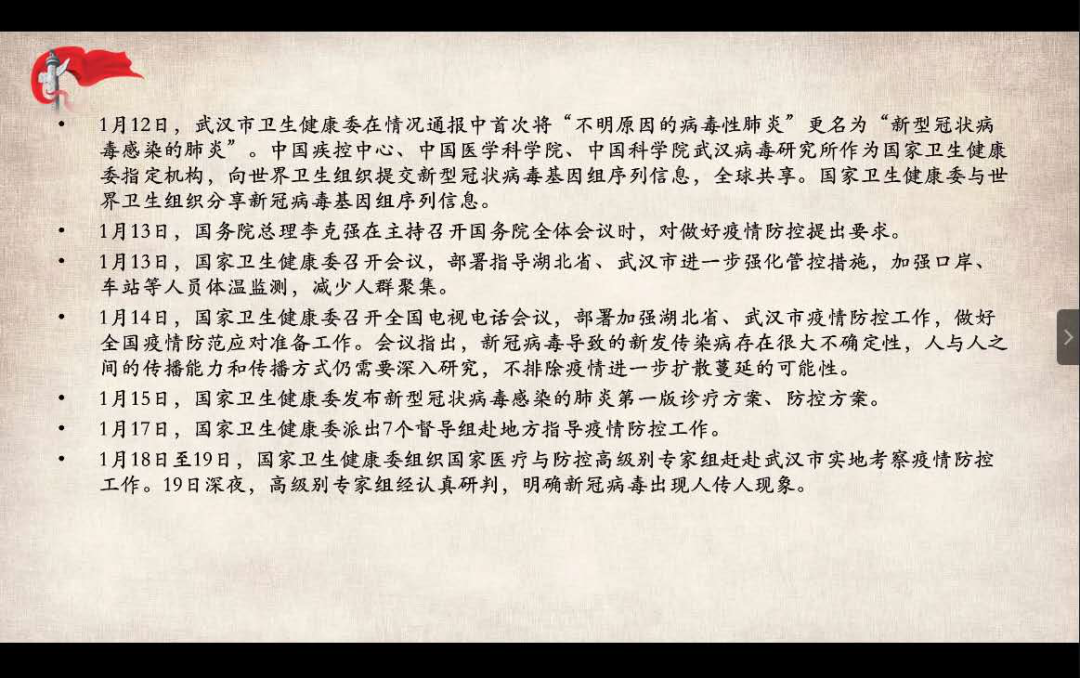 • 1月12日，武汉市卫生健康委在情况通报中首次将“不明原因的病毒性肺炎”更名为“新型冠状病
毒感染的肺炎”。中国疾控中心、中国医学科学院、中国科学院武汉病毒研究所作为国家卫生健康
委指定机构，向世界卫生组织提交新型冠状病毒基因组序列信息，全球共享。国家卫生健康委与世
界卫生组织分享新冠病毒基因组序列信息。
• 1月13日，国务院总理李克强在主持召开国务院全体会议时，对做好疫情防控提出要求。
• 1月13日，国家卫生健康委召开会议，部署指导湖北省、武汉市进一步强化管控措施，加强口岸、
车站等人员体温监测，减少人群聚集。
• 1月14日，国家卫生健康委召开全国电视电话会议，部署加强湖北省、武汉市疫情防控工作，做好
全国疫情防范应对准备工作。会议指出，新冠病毒导致的新发传染病存在很大不确定性，人与人之
间的传播能力和传播方式仍需要深入研究，不排除疫情进一步扩散蔓延的可能性。
• 1月15日，国家卫生健康委发布新型冠状病毒感染的肺炎第一版诊疗方案、防控方案。
• 1月17日，国家卫生健康委派出7个督导组赴地方指导疫情防控工作。
• 1月18日至19日，国家卫生健康委组织国家医疗与防控高级别专家组赶赴武汉市实地考察疫情防控
工作。19日深夜，高级别专家组经认真研判，明确新冠病毒出现人传人现象。